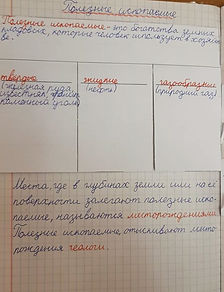 Полезные ископаемые
Полезные ископаемые - это богатства земных
кладовых, которые человек использует в хозяйст
ве.
твёрдые
(железная руда
известняк, гранит
каменный уголь)
жидкие
(нефть)
газообразные
(природный газ)
Места, где в глубинах земли или на её
поверхности залегают полезные иско-
паемые, называются месторождениями.
Полезные ископаемые отыскивают место
рождения геологи.